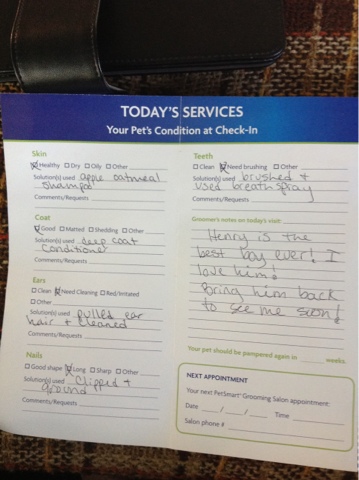 TODAY'S SERVICES
Your Pet's Condition at Check-In
Skin
Healthy Dry Oily Other
Solution(s) used apple oatmeal
shampoo
Comments/Requests
Coat
Good Matted Shedding Other
Solution(s) used deep coat
conditioner
Comments/Requests
Ears
Clean Need Cleaning Red/Irritated
Other
Solution(s) used pulled ear
hair + cleaned
Comments/Requests
Nails
Good shape Long Sharp Other
Solution(s) used clipped +
ground
Comments/Requests
Teeth
Clean Need brushing Other
Solution(s) used brushed +
used breath spray
Comments/Requests
Groomer's notes on today's visit:
Henry is the
best boy ever! I
love him!
Bring him back
to see me soon!
Your pet should be pampered again in weeks.
NEXT APPOINTMENT
Your next PetSmart Grooming Salon appointment:
Date / / Time
Salon phone #